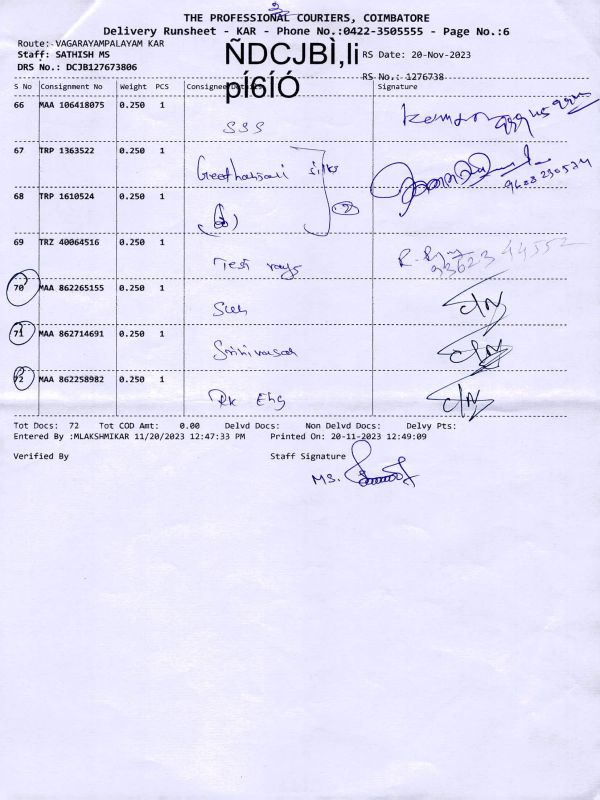 THE PROFESSIONAL COURIERS, COIMBATORE
Delivery Runsheet - KAR - Phone No.:0422-3505555 - Page No.:6
Route: VAGARAYAMPALAYAM KAR
Staff: SATHISH MS
DRS No.: DCJB127673806
ÑDCJBÌ,li
pÍ6ÍÓ
RS Date: 20-Nov-2023
RS No.: 1276738
S No Consignment No Weight PCS Consignee Details Signature
66 MAA 106418075 0.250 1
SSS
67 TRP 1363522 0.250 1
silks 9688230534
68 TRP 1610524 0.250 1
69 TRZ 40064516 0.250 1
Test rays
70 MAA 862265155 0.250 1
71 MAA 862714691 0.250 1
Srinivasan
72 MAA 862258982 0.250 1
RK Eng
Tot Docs: 72 Tot COD Amt: 0.00 Delvd Docs: Non Delvd Docs: Delvy Pts:
Entered By :MLAKSHMIKAR 11/20/2023 12:47:33 PM Printed On: 20-11-2023 12:49:09
Verified By Staff Signature
MS.